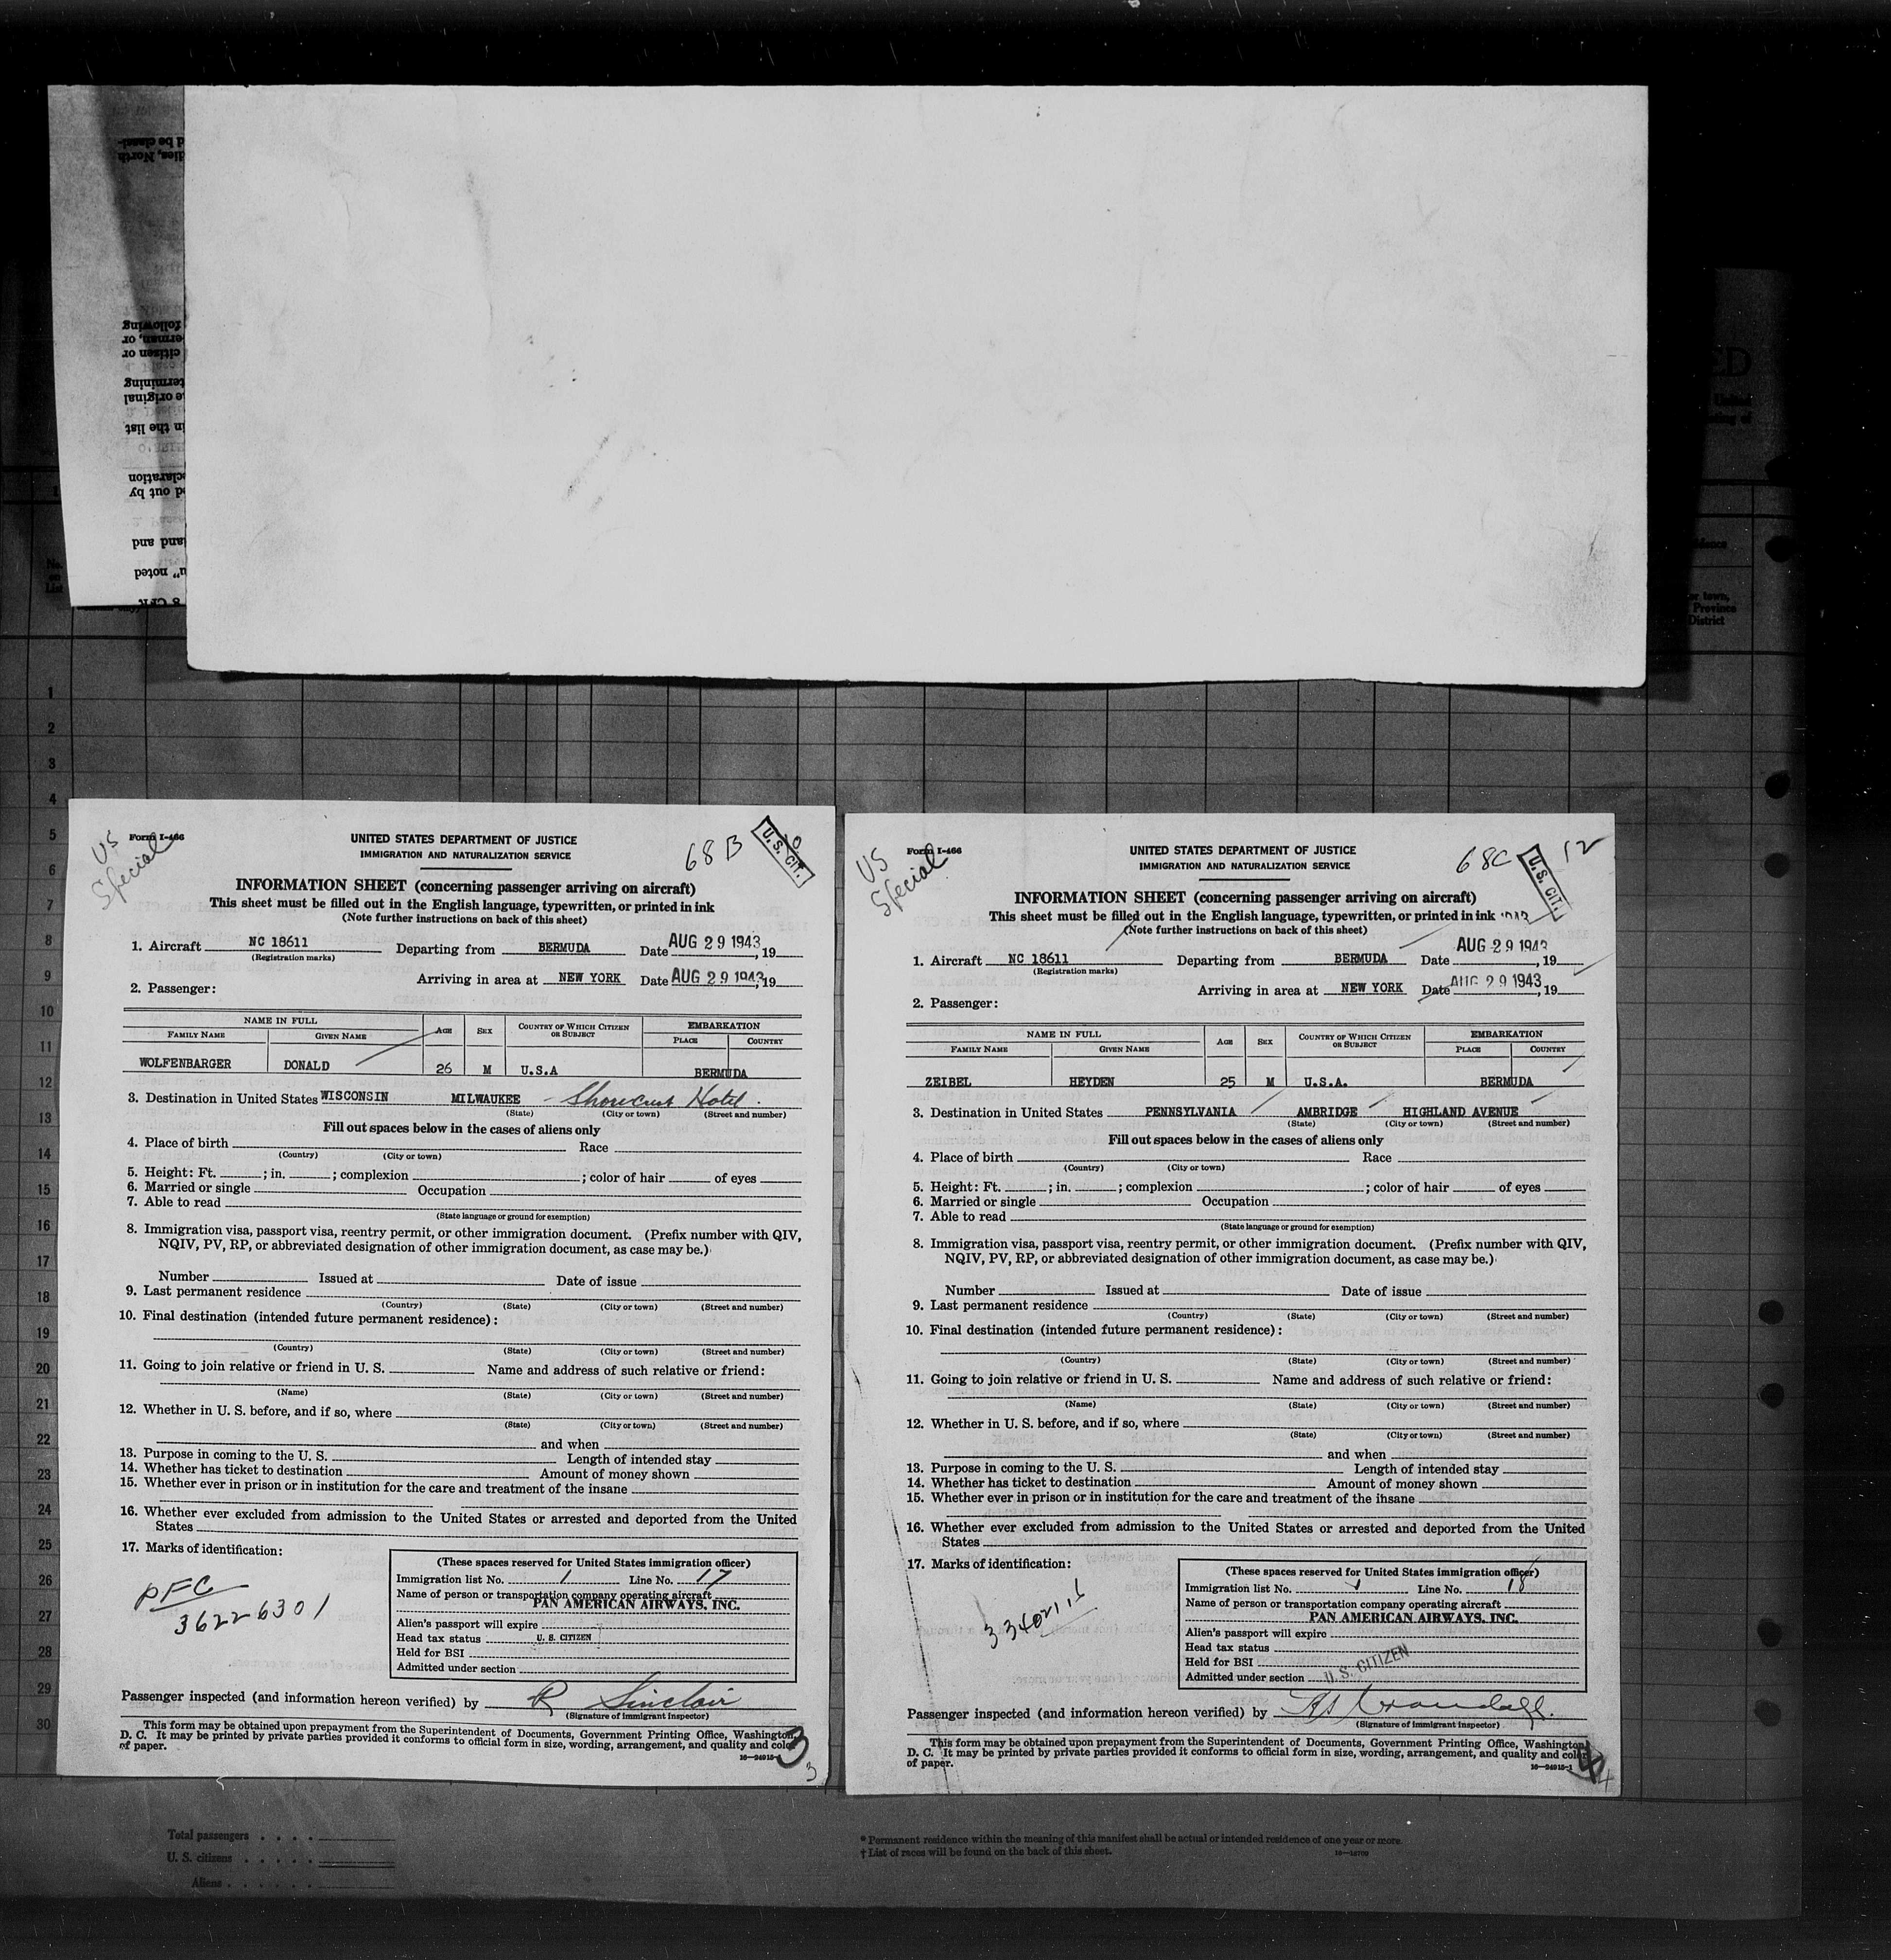 Form I-466
US
Special
UNITED STATES DEPARTMENT OF JUSTICE
IMMIGRATION AND NATURALIZATION SERVICE
68 B
U.S. CIT.
INFORMATION SHEET (concerning passenger arriving on aircraft)
This sheet must be filled out in the English language, typewritten, or printed in ink
(Note further instructions on back of this sheet)
1. Aircraft NC 18611 Departing from BERMUDA Date AUG 29 1943, 19
(Registration marks)
Arriving in area at NEW YORK Date AUG 29 1943, 19
2. Passenger:
NAME IN FULL AGE SEX COUNTRY OF WHICH CITIZEN OR SUBJECT EMBARKATION
FAMILY NAME GIVEN NAME PLACE COUNTRY
WOLFENBARGER DONALD 26 M U.S.A BERMUDA
3. Destination in United States WISCONSIN MILWAUKEE - Shorecrest Hotel.
(State) (City or town) (Street and number)
Fill out spaces below in the cases of aliens only
4. Place of birth Race
(Country) (City or town)
5. Height: Ft. ; in. ; complexion ; color of hair of eyes
6. Married or single Occupation
7. Able to read
(State language or ground for exemption)
8. Immigration visa, passport visa, reentry permit, or other immigration document. (Prefix number with QIV,
NQIV, PV, RP, or abbreviated designation of other immigration document, as case may be.)
Number Issued at Date of issue
9. Last permanent residence
(Country) (State) (City or town) (Street and number)
10. Final destination (intended future permanent residence):
(Country) (State) (City or town) (Street and number)
11. Going to join relative or friend in U. S. Name and address of such relative or friend:
(Name) (State) (City or town) (Street and number)
12. Whether in U. S. before, and if so, where
(State) (City or town) (Street and number)
and when
13. Purpose in coming to the U. S. Length of intended stay
14. Whether has ticket to destination Amount of money shown
15. Whether ever in prison or in institution for the care and treatment of the insane
16. Whether ever excluded from admission to the United States or arrested and deported from the United
States
17. Marks of identification:
PFC
36226301
(These spaces reserved for United States immigration officer)
Immigration list No. 1 Line No. 17
Name of person or transportation company operating aircraft
PAN AMERICAN AIRWAYS, INC.
Alien's passport will expire
Head tax status U. S. CITIZEN
Held for BSI
Admitted under section
Passenger inspected (and information hereon verified) by R Sinclair
(Signature of immigrant inspector)
This form may be obtained upon prepayment from the Superintendent of Documents, Government Printing Office, Washington,
D. C. It may be printed by private parties provided it conforms to official form in size, wording, arrangement, and quality and color
of paper.
16—24915-1
3
3
Form I-466
US
Special
UNITED STATES DEPARTMENT OF JUSTICE
IMMIGRATION AND NATURALIZATION SERVICE
68C
U.S. CIT.
12
INFORMATION SHEET (concerning passenger arriving on aircraft)
This sheet must be filled out in the English language, typewritten, or printed in ink
(Note further instructions on back of this sheet)
1. Aircraft NC 18611 Departing from BERMUDA Date AUG 29 1943, 19
(Registration marks)
Arriving in area at NEW YORK Date AUG 29 1943, 19
2. Passenger:
NAME IN FULL AGE SEX COUNTRY OF WHICH CITIZEN OR SUBJECT EMBARKATION
FAMILY NAME GIVEN NAME PLACE COUNTRY
ZEIBEL HEYDEN 25 M U.S.A. BERMUDA
3. Destination in United States PENNSYLVANIA AMBRIDGE HIGHLAND AVENUE
(State) (City or town) (Street and number)
Fill out spaces below in the cases of aliens only
4. Place of birth Race
(Country) (City or town)
5. Height: Ft. ; in. ; complexion ; color of hair of eyes
6. Married or single Occupation
7. Able to read
(State language or ground for exemption)
8. Immigration visa, passport visa, reentry permit, or other immigration document. (Prefix number with QIV,
NQIV, PV, RP, or abbreviated designation of other immigration document, as case may be.)
Number Issued at Date of issue
9. Last permanent residence
(Country) (State) (City or town) (Street and number)
10. Final destination (intended future permanent residence):
(Country) (State) (City or town) (Street and number)
11. Going to join relative or friend in U. S. Name and address of such relative or friend:
(Name) (State) (City or town) (Street and number)
12. Whether in U. S. before, and if so, where
(State) (City or town) (Street and number)
and when
13. Purpose in coming to the U. S. Length of intended stay
14. Whether has ticket to destination Amount of money shown
15. Whether ever in prison or in institution for the care and treatment of the insane
16. Whether ever excluded from admission to the United States or arrested and deported from the United
States
17. Marks of identification:
33402116
(These spaces reserved for United States immigration officer)
Immigration list No. 1 Line No. 18
Name of person or transportation company operating aircraft
PAN AMERICAN AIRWAYS, INC.
Alien's passport will expire
Head tax status
Held for BSI
Admitted under section U. S. CITIZEN
Passenger inspected (and information hereon verified) by
(Signature of immigrant inspector)
This form may be obtained upon prepayment from the Superintendent of Documents, Government Printing Office, Washington,
D. C. It may be printed by private parties provided it conforms to official form in size, wording, arrangement, and quality and color
of paper.
16—24915-1
4
4
1
2
3
4
5
6
7
8
9
10
11
12
13
14
15
16
17
18
19
20
21
22
23
24
25
26
27
28
29
30
Total passengers
U. S. citizens
Aliens
* Permanent residence within the meaning of this manifest shall be actual or intended residence of one year or more.
† List of races will be found on the back of this sheet.